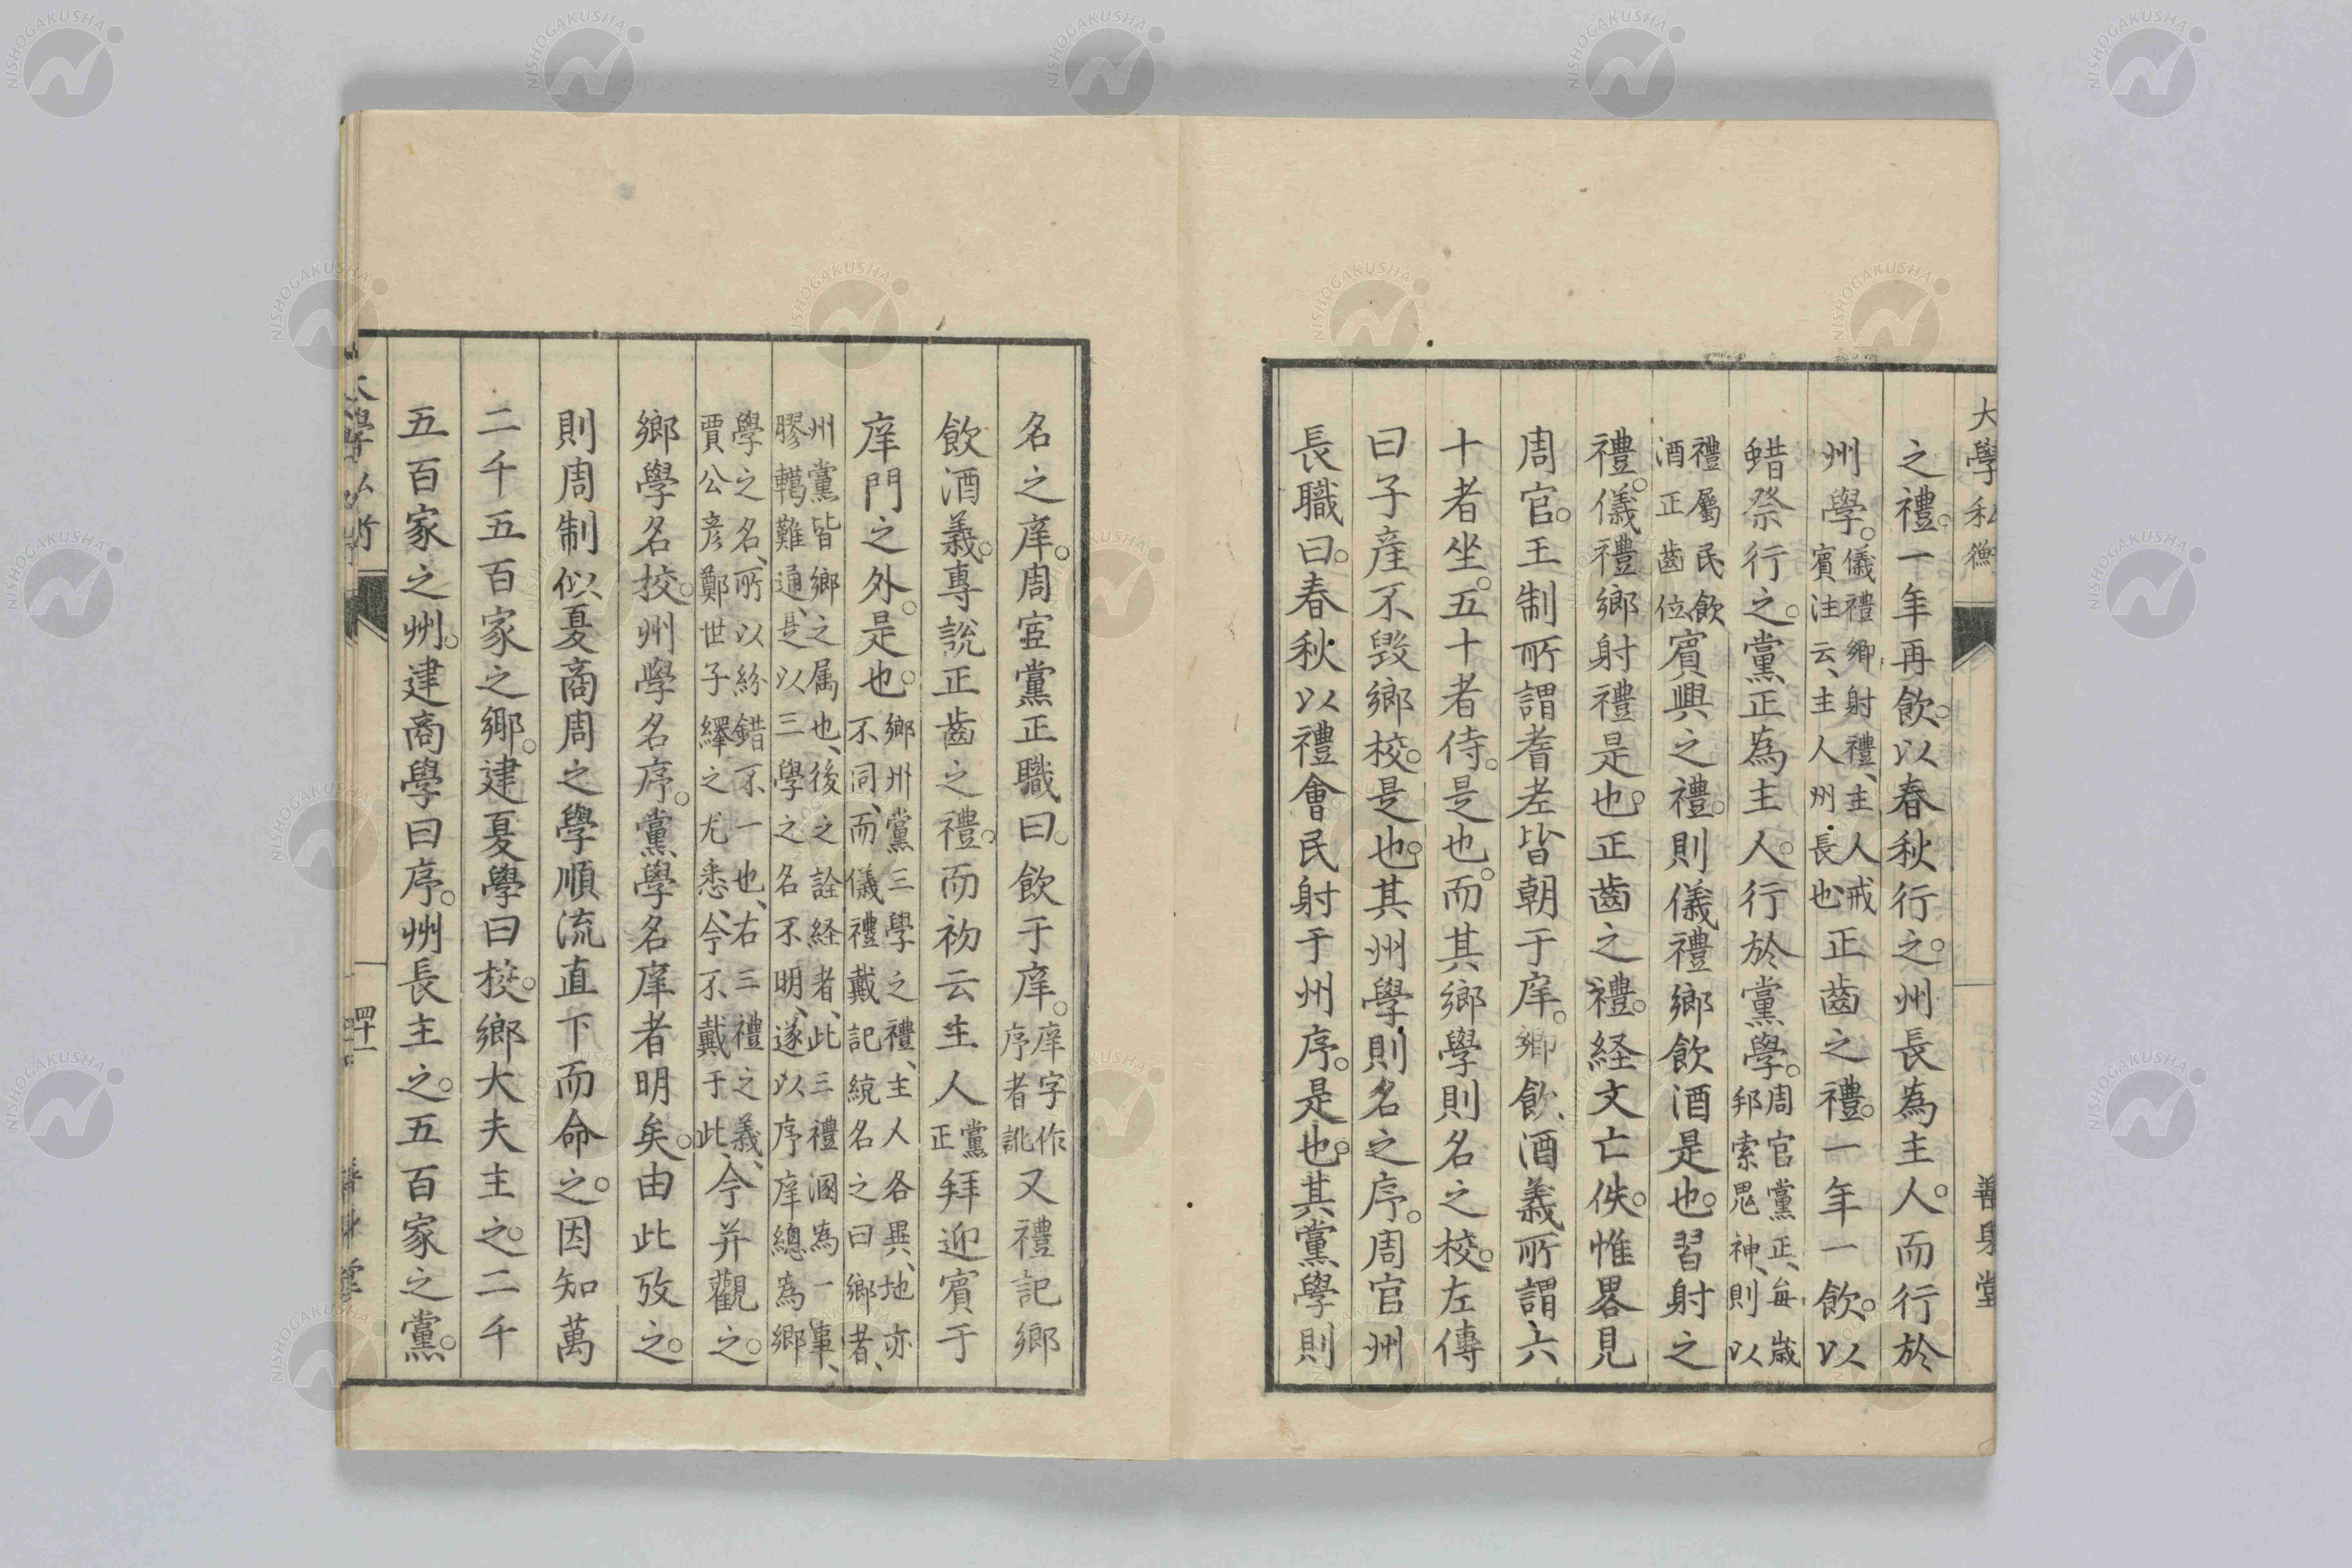 大學私衡
善身堂
之禮。一年再飲。以春秋行之。州長為主人。而行於
州學。儀禮鄉射禮、主人戒賓注云、主人州長也正齒之禮。一年一飲。以
蜡祭行之。黨正為主人。行於黨學。周官黨正、每歲邦索鬼神、則以
禮屬民飲酒正齒位賓興之禮。則儀禮鄉飲酒是也。習射之
禮。儀禮鄉射禮是也。正齒之禮。経文亡佚。惟畧見
周官。王制所謂耆老皆朝于庠。鄉飲酒義所謂六
十者坐。五十者侍。是也。而其鄉學則名之校。左傳
曰子産不毀鄉校。是也。其州學則名之序。周官州
長職曰。春秋以禮會民射于州序。是也。其黨學則
名之庠。周官黨正職曰。飲于庠。庠字作序者訛又禮記鄉
飲酒義。專說正齒之禮。而初云主人黨正拜迎賓于
庠門之外。是也。鄉州黨三學之禮、主人各異、地亦不同、而儀禮戴記統名之曰鄉者、
州黨皆鄉之属也、後之詮経者、此三禮溷為一事、膠轕難通、是以三學之名不明、遂以序庠總為鄉
學之名、所以紛錯不一也、右三禮之義、賈公彦鄭世子繹之尤悉、今不戴于此、今并觀之。
鄉學名校。州學名序。黨學名庠者明矣。由此攷之。
則周制似夏商周之學順流直下而命之。因知萬
二千五百家之鄉。建夏學曰校。鄉大夫主之。二千
五百家之州。建商學曰序。州長主之。五百家之黨。
四十一